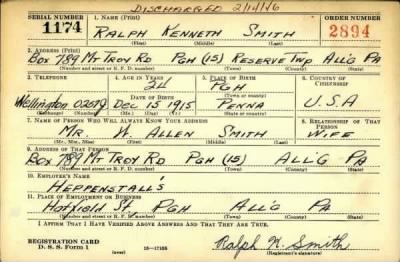 DISCHARGED 2/14/46
SERIAL NUMBER 1. NAME (Print) ORDER NUMBER
1174 RALPH KENNETH SMITH 2894
(First) (Middle) (Last)
2. ADDRESS (Print)
BOX 789 MT TROY RD PGH (15) RESERVE TWP ALL'G PA
(Number and street or R. F. D. number) (Town) (County) (State)
3. TELEPHONE 4. AGE IN YEARS 5. PLACE OF BIRTH 6. COUNTRY OF CITIZENSHIP
24 PGH
DATE OF BIRTH (Town or county)
Wellington DEC 15 1915 PENNA U.S.A
(Exchange) (Number) (Mo.) (Day) (Yr.) (State or country)
7. NAME OF PERSON WHO WILL ALWAYS KNOW YOUR ADDRESS 8. RELATIONSHIP OF THAT PERSON
MR. W. ALLEN SMITH WIFE
(Mr., Mrs., Miss) (First) (Middle) (Last)
9. ADDRESS OF THAT PERSON
BOX 789 MT TROY RD PGH (15) ALL'G PA
(Number and street or R. F. D. number) (Town) (County) (State)
10. EMPLOYER'S NAME
HEPPENSTALL'S
11. PLACE OF EMPLOYMENT OR BUSINESS
HATFIELD St. PGH ALL'G PA
(Number and street or R. F. D. number) (Town) (County) (State)
I AFFIRM THAT I HAVE VERIFIED ABOVE ANSWERS AND THAT THEY ARE TRUE.
REGISTRATION CARD
D. S. S. Form 1 (over) 16—17105 Ralph K. Smith
(Registrant's signature)